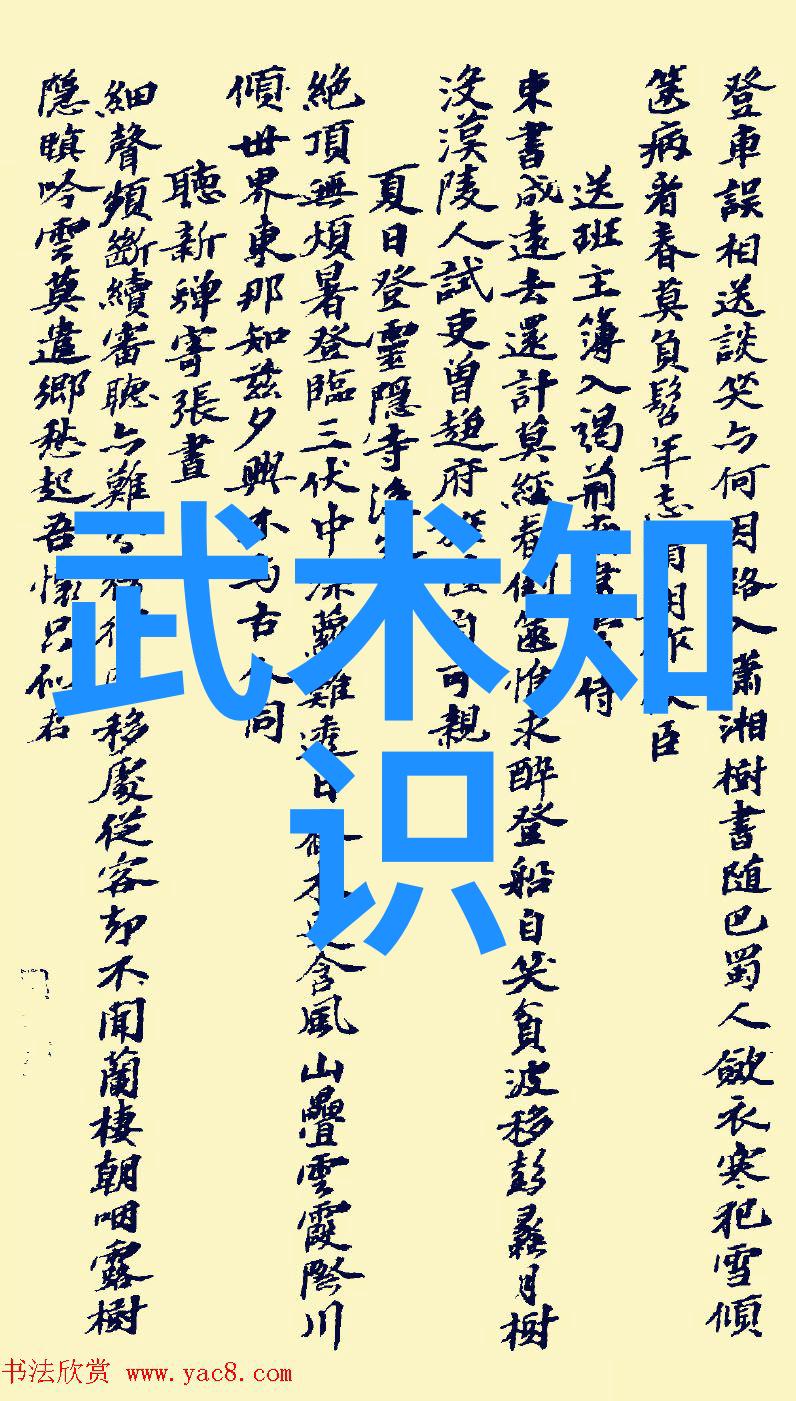 登車誤相送談笑亦何因路入瀟湘樹書随巴蜀人歛衣寒犯雪傾
篋病看春莫負髫年志
臣
送班主簿入謁荊
侍
東書成遠去還計莫經春倒篋惟求醉登船自笑貧波移彭蠡月樹
没漢陵人試吏曾趨府
可親
夏日登靈隱寺
絶頂無煩暑登臨三伏中深蘿難透日
含風山疊雲霞際川
傾世界東那知茲夕興不与古人同
聽新蟬寄張晝
細聲頻斷續審聽亦難
移處從容却不聞蘭棲朝咽露樹
隱暝吟雲莫遣鄉愁起吾懷只似君
武术知
识
书法欣赏 www.yac8.com